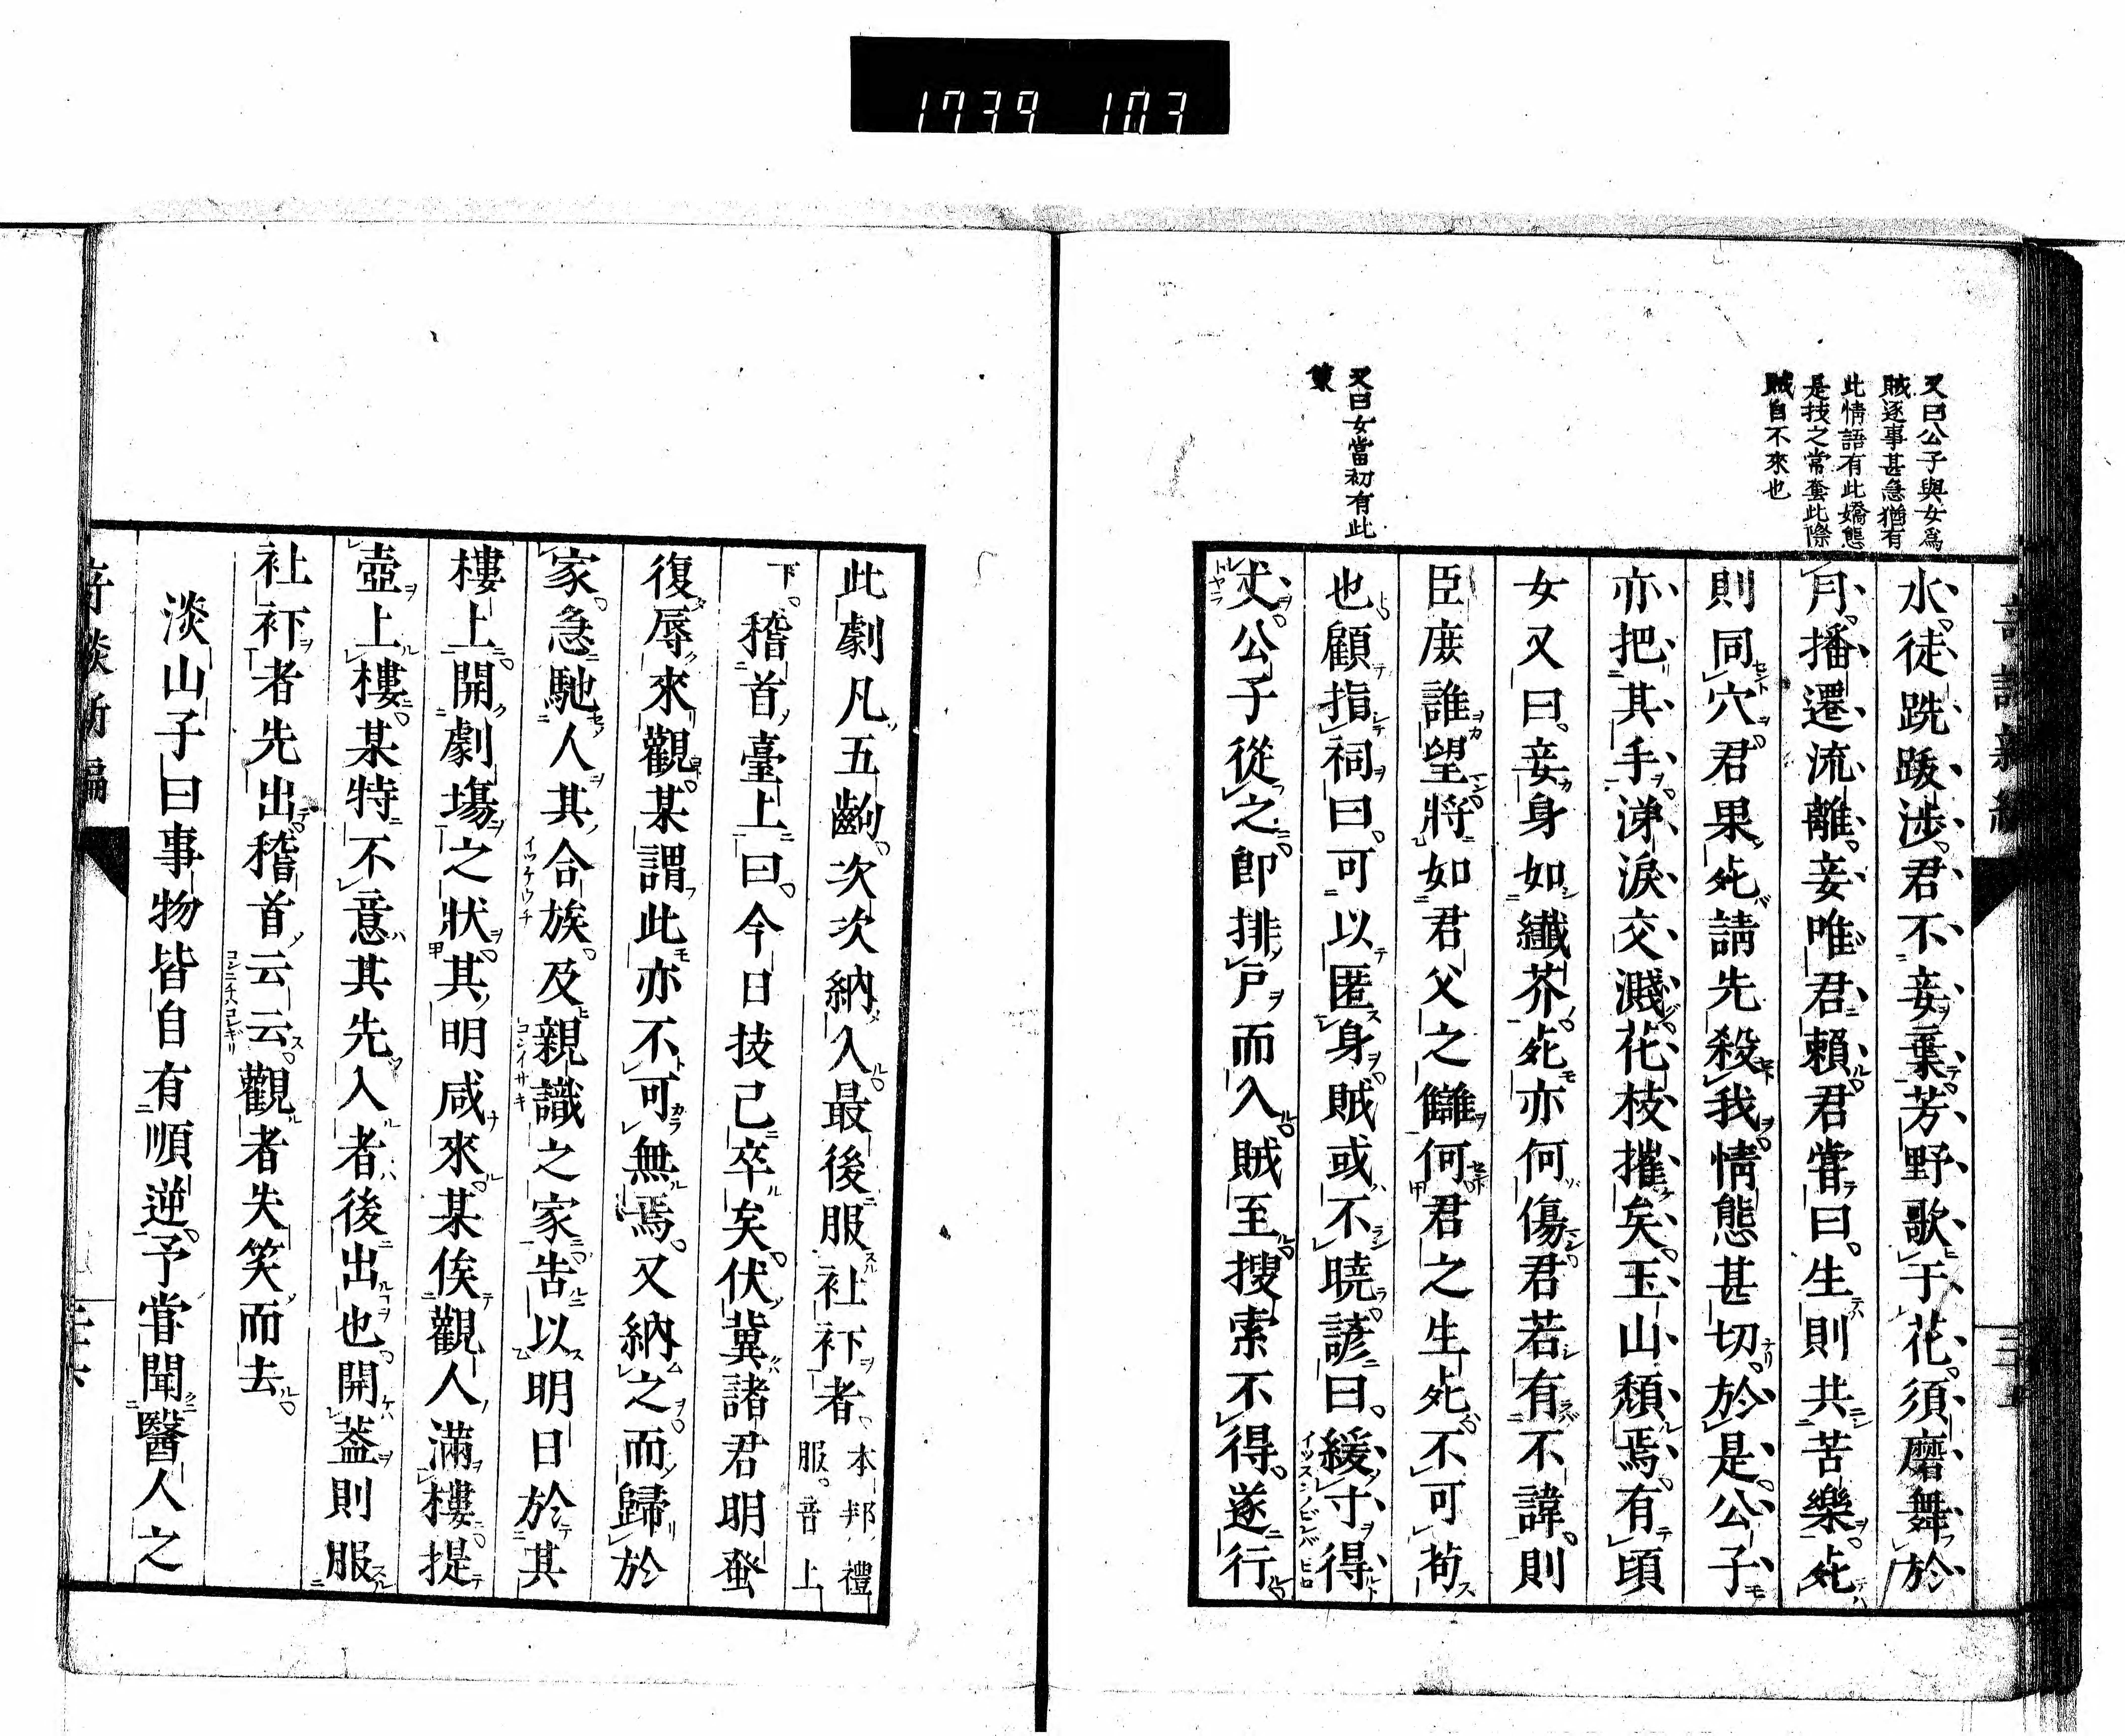 1739 103
又曰公子與女爲
賊逐事甚急猶有
此情語有此嬌態
是技之常套此際
賊自不來也
又曰女當初有此
策
水徒跣跋涉君不妾棄芳野歌于花須磨舞於
月播遷流離妾唯君賴君嘗曰生則共苦樂死
則同穴君果死請先殺我情態甚切於是公子
亦把其手涕淚交濺花枝摧矣玉山頽焉有頃
女又曰妾身如纖芥死亦何傷君若有不諱則
臣庶誰望將如君父之讎何君之生死不可苟
也顧指祠曰可以匿身賊或不曉諺曰緩寸得
丈公子從之卽排戶而入賊至搜索不得遂行
此劇凡五齣次次納入最後服𧘕𧘔者本邦禮
服音上
下稽首臺上曰今日技已卒矣伏冀諸君明蚤
復辱來觀某謂此亦不可無焉又納之而歸於
家急馳人其合族及親識之家告以明日於其
樓上開劇場之狀其明咸來某俟觀人滿樓提
壺上樓某特不意其先入者後出也開蓋則服
𧘕𧘔者先出稽首云云觀者失笑而去
淡山子曰事物皆自有順逆予嘗聞醫人之